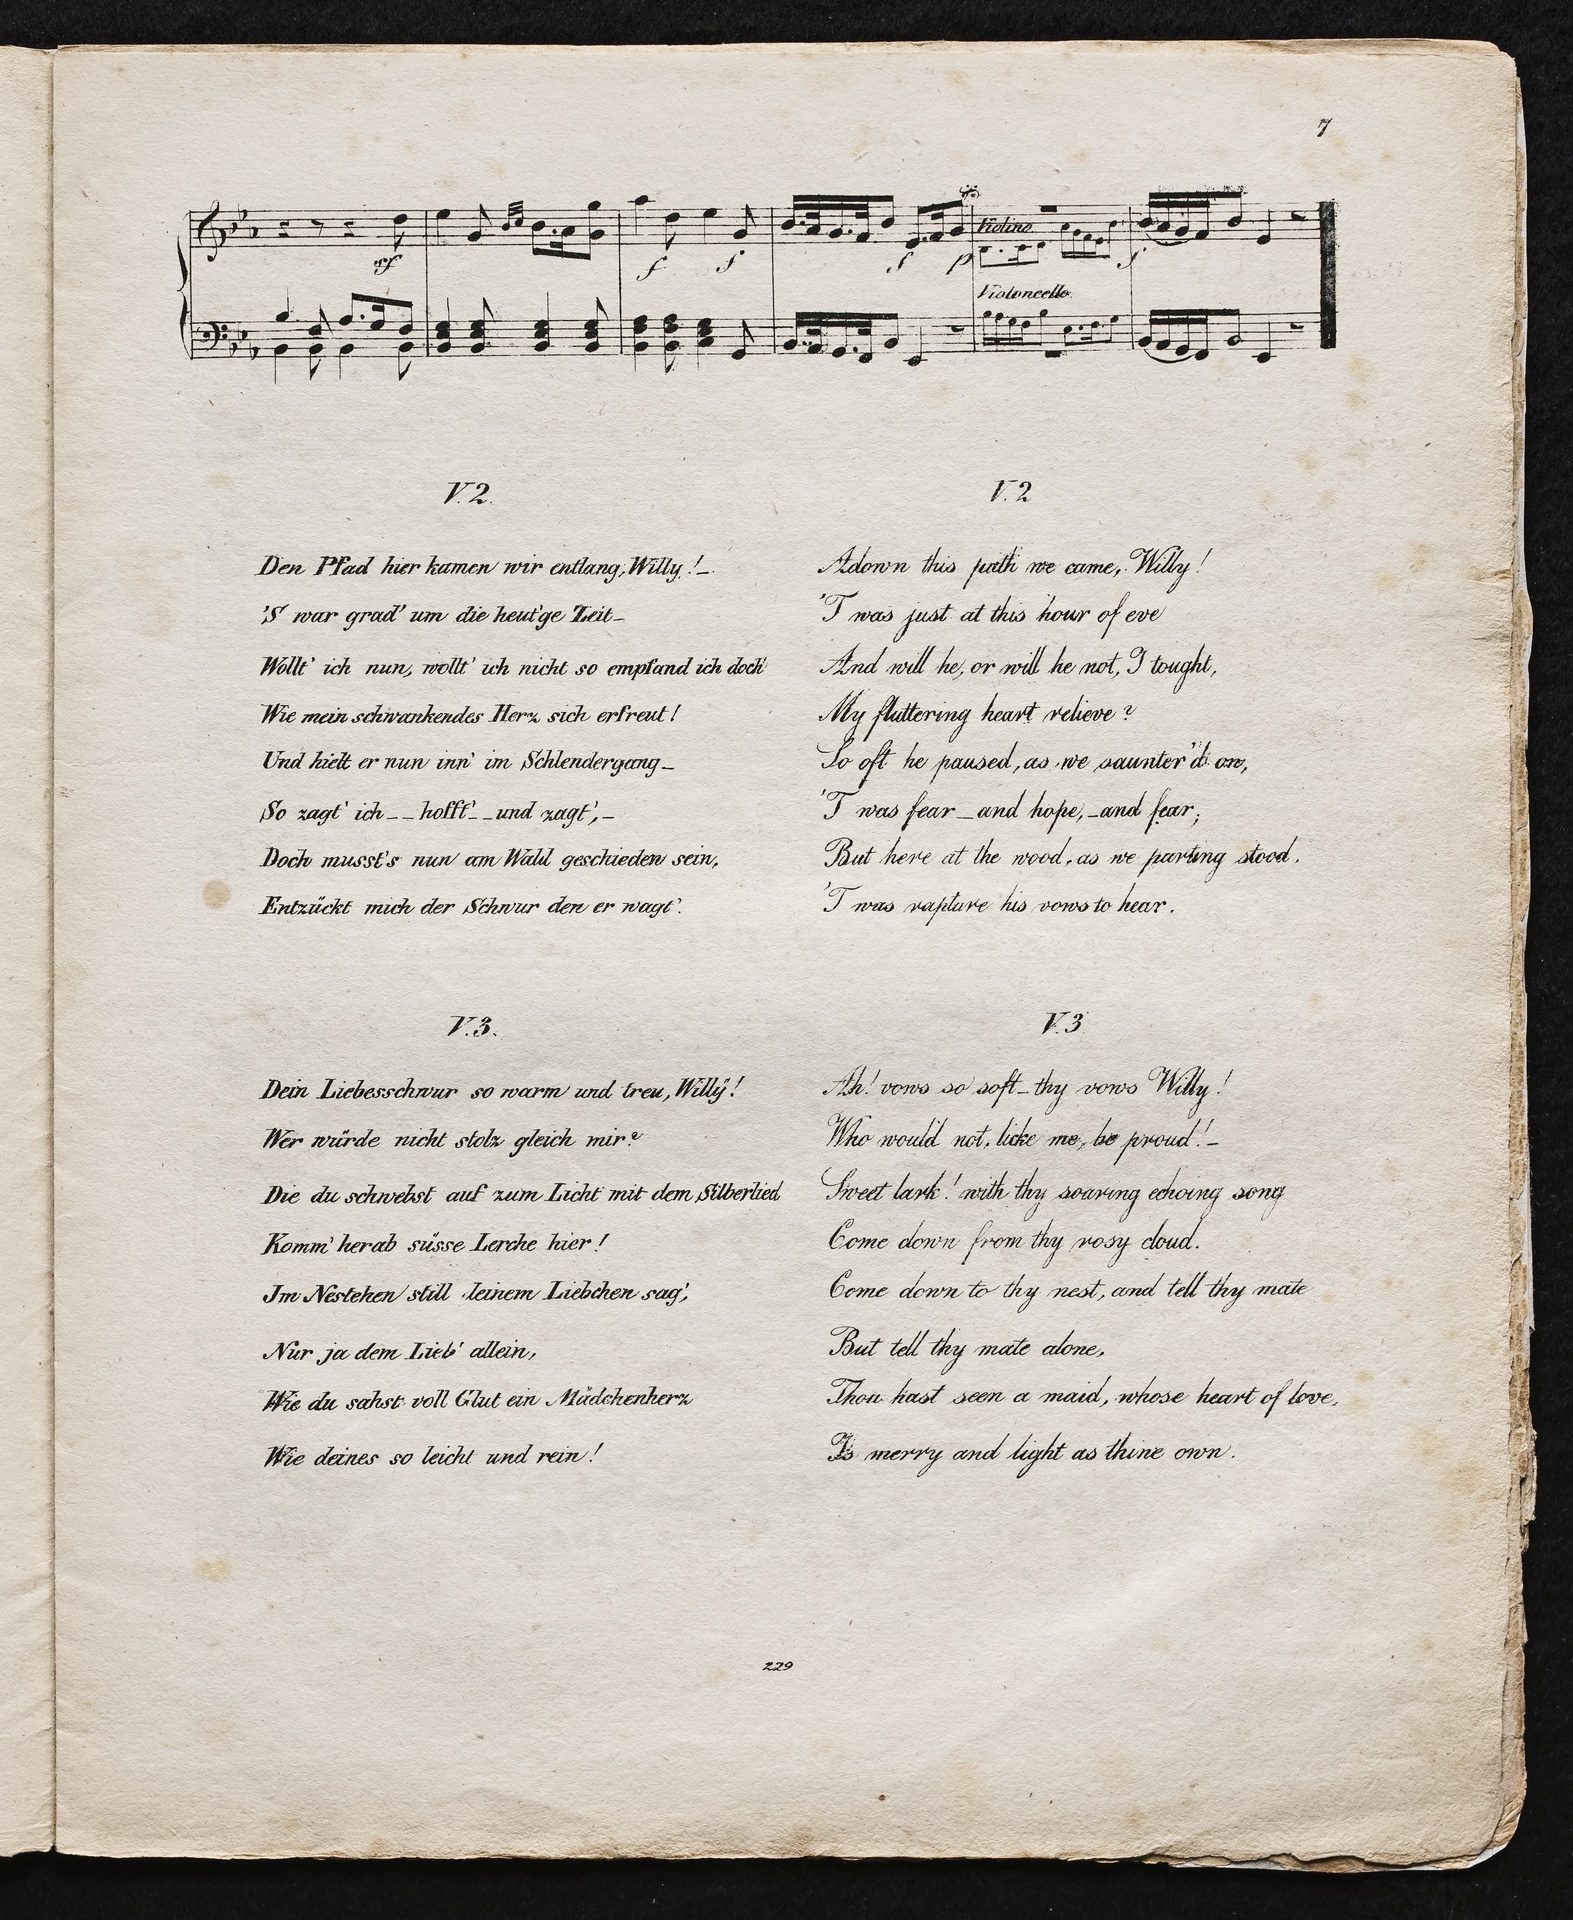 7
sf f f f p f
Violino
Violoncello.
V. 2.
Den Pfad hier kamen wir entlang, Willy!_
'S war grad' um die heut'ge Zeit_
Wollt' ich nun, wollt' ich nicht so empfand ich doch
Wie mein schwankendes Herz sich erfreut!
Und hielt er nun inn' im Schlendergang_
So zagt' ich _ _ hofft' _ _ und zagt', _
Doch musst's nun am Wald geschieden sein,
Entzückt mich der Schwur den er wagt'.
V. 2
Adown this path we came, Willy!
'T was just at this hour of eve
And will he, or will he not, I tought,
My fluttering heart relieve?
So oft he paused, as we saunter'd on,
'T was fear _ and hope, _ and fear;
But here at the wood, as we parting stood.
'T was rapture his vows to hear.
V. 3.
Dein Liebesschwur so warm und treu, Willÿ!
Wer würde nicht stolz gleich mir?
Die du schwebst auf zum Licht mit dem Silberlied
Komm' herab süsse Lerche hier!
Im Nestchen still deinem Liebchen sag',
Nur ja dem Lieb' allein,
Wie du sahst voll Glut ein Mädchenherz
Wie deines so leicht und rein!
V. 3
Ah! vows so soft _ thy vows Willy!
Who would not, licke me, be proud! _
Sweet lark! with thy soaring echoing song
Come down from thy rosy cloud.
Come down to thy nest, and tell thy mate
But tell thy mate alone,
Thou hast seen a maid, whose heart of love,
Is merry and light as thine own.
229